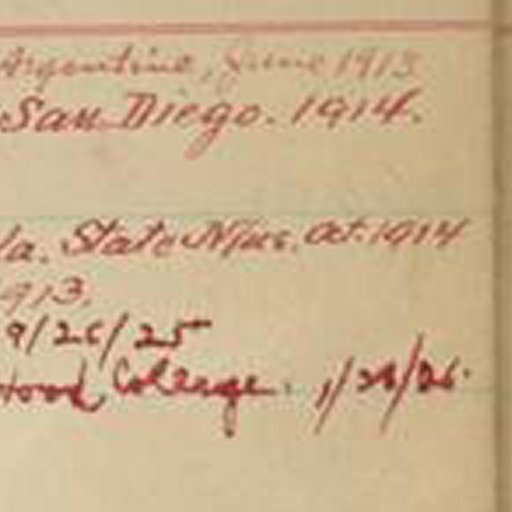 Argentine, June 1913
San Diego. 1914.
la. State Mus. Oct. 1914
913.
9/26/25
Hood College. 1/28/26.